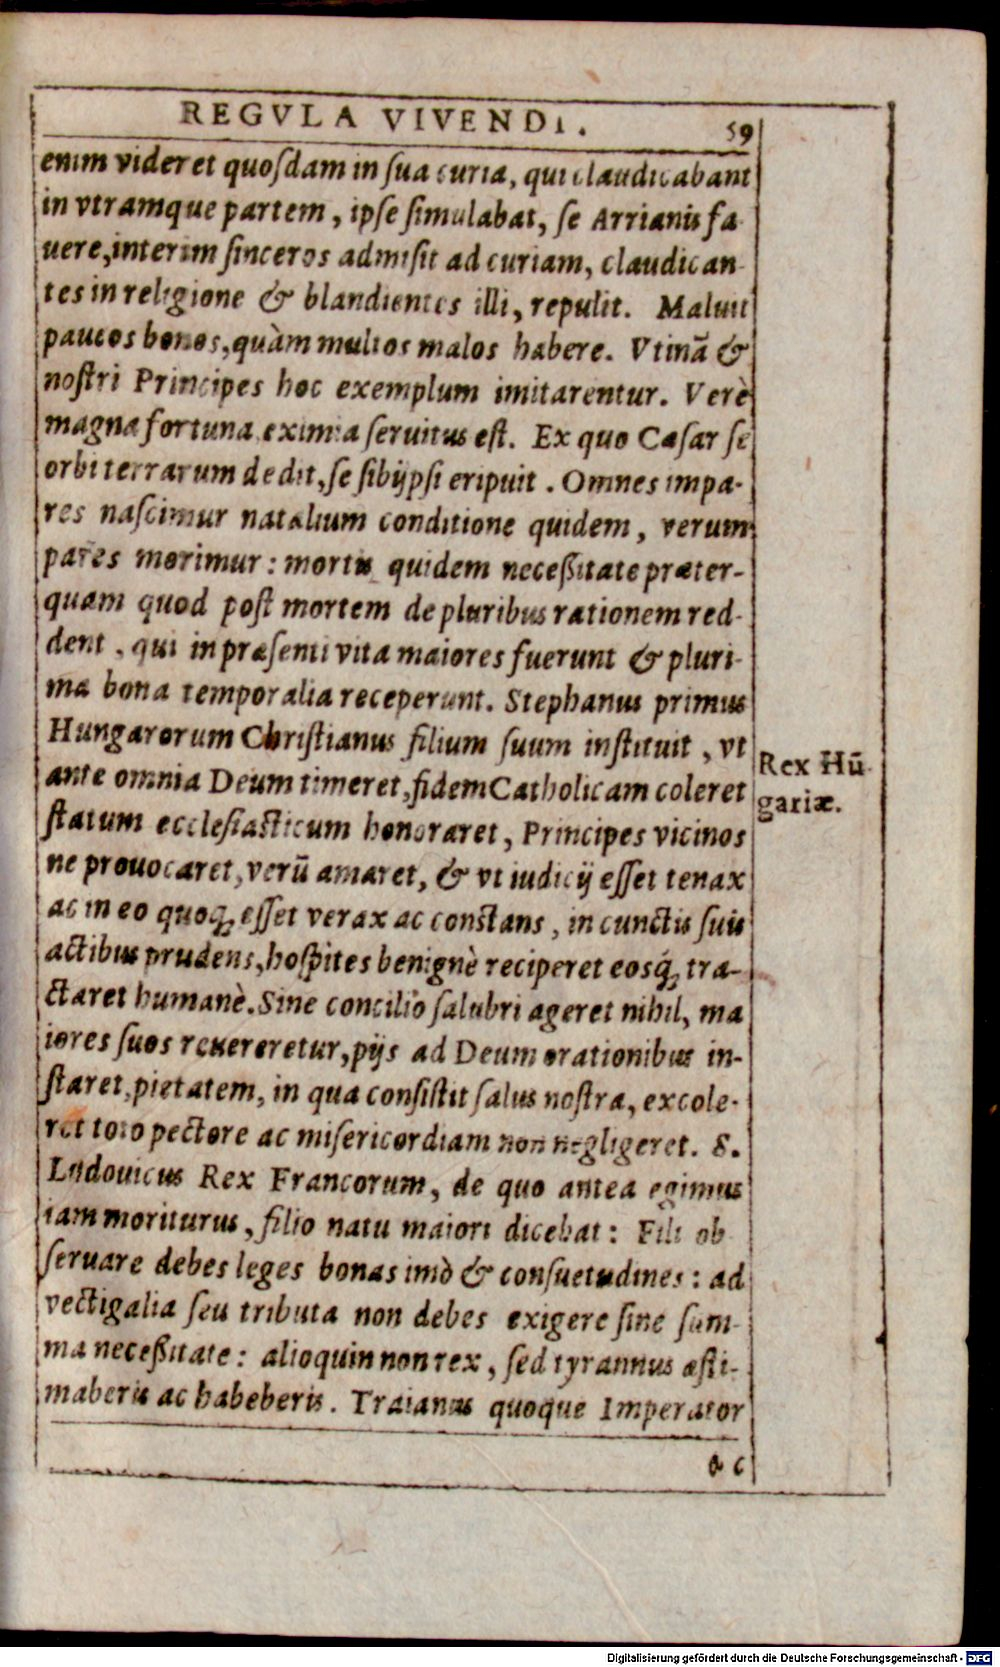 REGVLA VIVENDI.
59
enim videret quoſdam in ſua curia, qui claudicabant
in vtramque partem, ipſe ſimulabat, ſe Arrianis fa
uere, interim ſinceros admiſit ad curiam, claudican-
tes in religione & blandientes illi, repulit. Maluit
paucos bonos, quàm multos malos habere. Vtinā &
noſtri Principes hoc exemplum imitarentur. Verè
magna fortuna eximia ſeruitus eſt. Ex quo Cæſar ſe
orbi terrarum dedit, ſe ſibijpſi eripuit. Omnes impa-
res naſcimur natalium conditione quidem, verum
pares morimur: mortis quidem neceßitate præter-
quam quod poſt mortem de pluribus rationem red-
dent, qui in præſenti vita maiores fuerunt & pluri-
ma bona temporalia receperunt. Stephanus primus
Hungarorum Chriſtianus filium ſuum inſtituit, vt
ante omnia Deum timeret, fidem Catholicam coleret
ſtatum eccleſiaſticum honoraret, Principes vicinos
ne prouocaret, verū amaret, & vt iudicij eſſet tenax
ac in eo quoq; eſſet verax ac conſtans, in cunctis ſuis
actibus prudens, hoſpites benignè reciperet eosq́; tra-
ctaret humanè. Sine concilio ſalubri ageret nihil, ma
iores ſuos reuereretur, pijs ad Deum orationibus in-
ſtaret, pietatem, in qua conſiſtit ſalus noſtra, excole-
ret toto pectore ac miſericordiam non negligeret. S.
Ludouicus Rex Francorum, de quo antea egimus
iam moriturus, filio natu maiori dicebat: Fili ob
ſeruare debes leges bonas imò & conſuetudines: ad
vectigalia ſeu tributa non debes exigere ſine ſum-
ma neceßitate: alioquin non rex, ſed tyrannus æſti-
maberis ac habeberis. Traianus quoque Imperator
&c
Rex Hū-
gariæ.
Digitalisierung gefördert durch die Deutsche Forschungsgemeinschaft - DFG